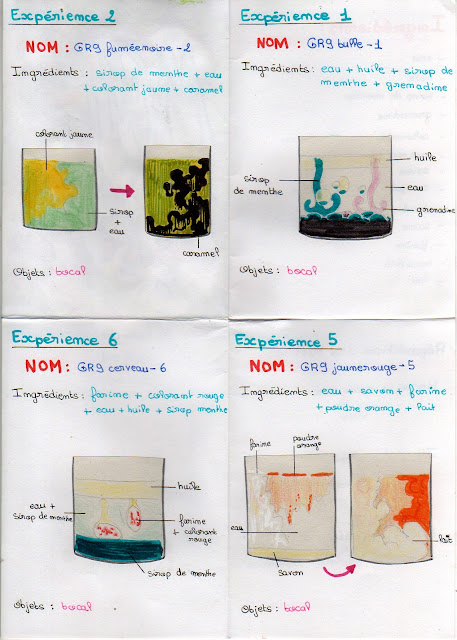 Expérience 2
NOM : GR9 fuméenoire-2
Ingrédients : sirop de menthe + eau
+ colorant jaune + caramel
colorant jaune
sirop
+
eau
caramel
Objets : bocal
Expérience 1
NOM : GR9 bulle-1
Ingrédients : eau + huile + sirop de
menthe + grenadine
huile
sirop
de menthe
eau
grenadine
Objets : bocal
Expérience 6
NOM : GR9 cerveau-6
Ingrédients : farine + colorant rouge
+ eau + huile + sirop menthe
huile
eau +
sirop de menthe
farine
+ colorant
rouge
sirop de menthe
Objets : bocal
Expérience 5
NOM : GR9 jaunerouge-5
Ingrédients : eau + savon + farine
+ poudre orange + lait
farine
poudre
orange
eau
lait
savon
Objets : bocal